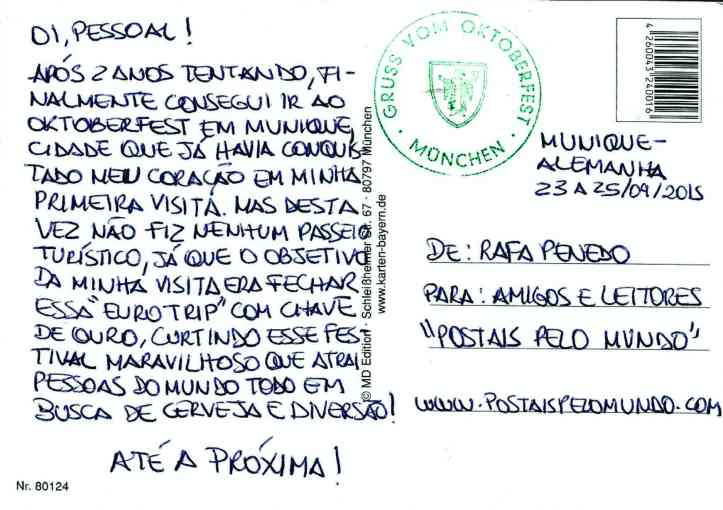 OI, PESSOAL!
APÓS 2 ANOS TENTANDO, FI-
NALMENTE CONSEGUI IR AO
OKTOBERFEST EM MUNIQUE,
CIDADE QUE JÁ HAVIA CONQUIS
TADO MEU CORAÇÃO EM MINHA
PRIMEIRA VISITA. MAS DESTA
VEZ NÃO FIZ NENHUM PASSEIO
TURÍSTICO, JÁ QUE O OBJETIVO
DA MINHA VISITA ERA FECHAR
ESSA "EUROTRIP" COM CHAVE
DE OURO, CURTINDO ESSE FES
TIVAL MARAVILHOSO QUE ATRAI
PESSOAS DO MUNDO TODO EM
BUSCA DE CERVEJA E DIVERSÃO!
ATÉ A PRÓXIMA!
Nr. 80124
© MD Edition · Schleißheimer Str. 67 · 80797 München
www.karten-bayern.de
GRUSS VOM OKTOBERFEST
· MÜNCHEN ·
4 260043 240016
MUNIQUE-
ALEMANHA
23 A 25/09/2015
DE: RAFA PENEDO
PARA: AMIGOS E LEITORES
"POSTAIS PELO MUNDO"
WWW.POSTAISPELOMUNDO.COM